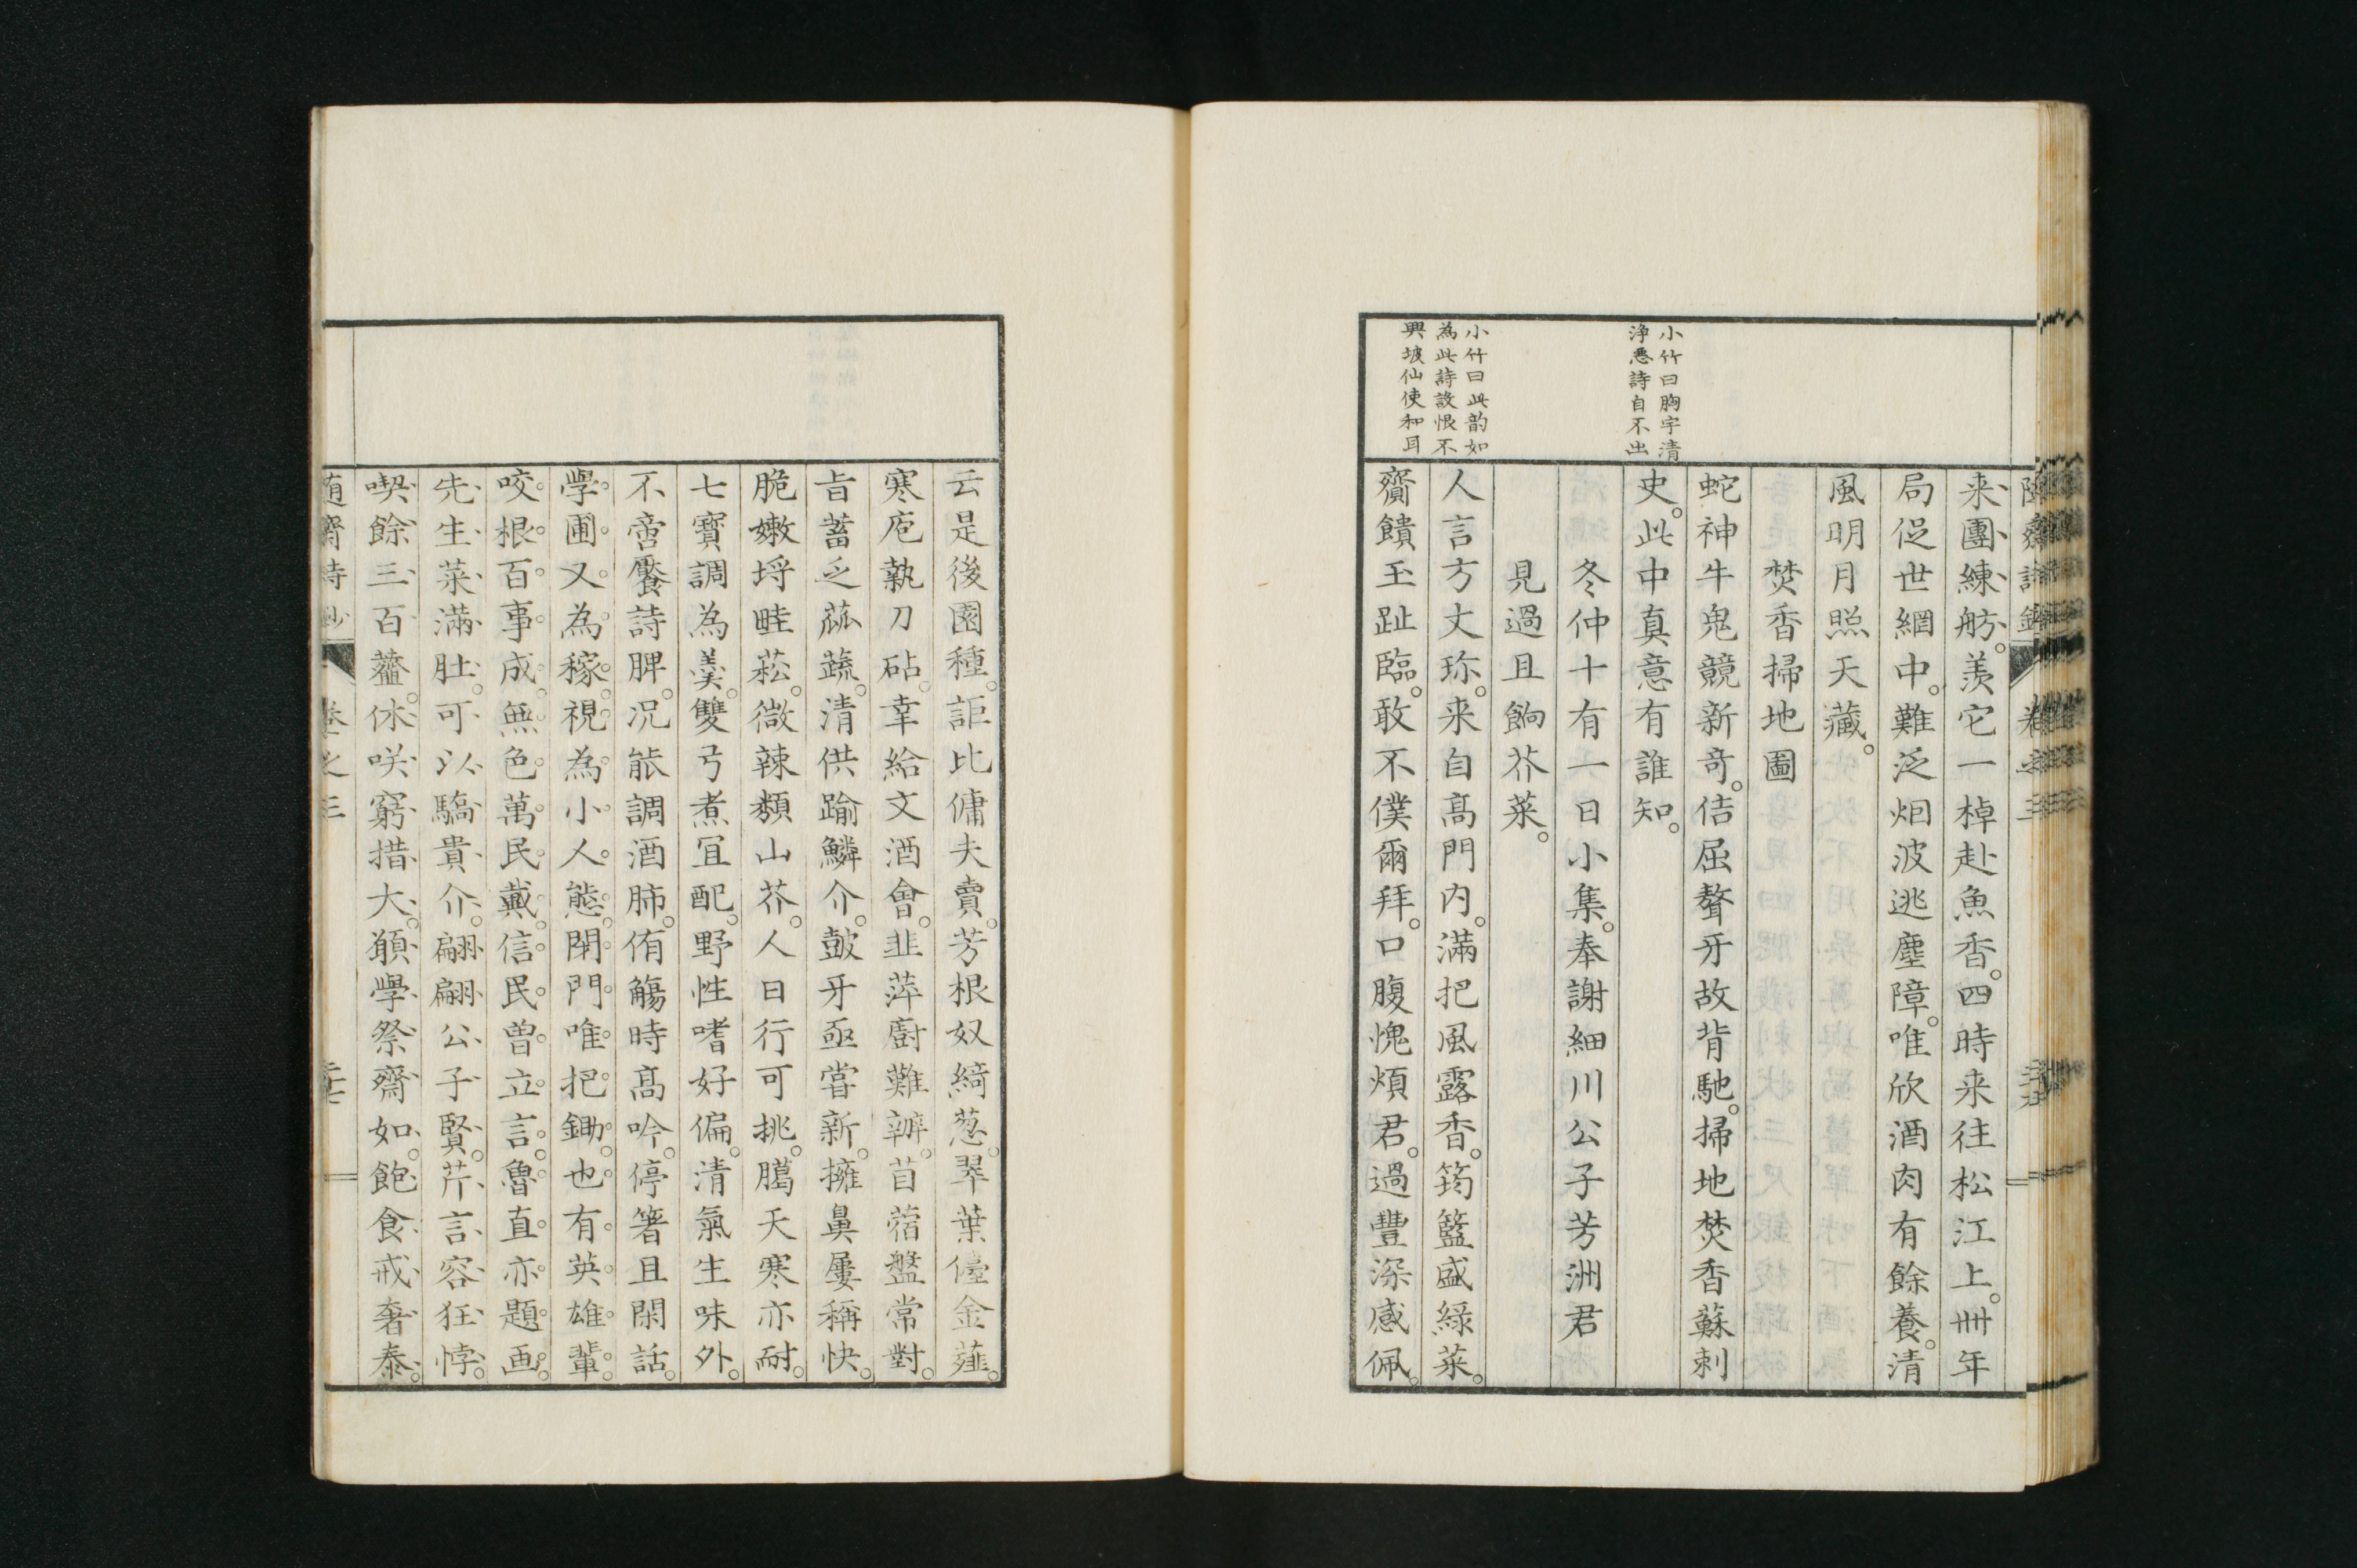 小竹曰胸宇清
浄悪詩自不出
小竹曰此韵如
為此詩設恨不
興坡仙使和耳
来團練舫。羨它一棹赴魚香。四時来往松江上。卌年
局促世網中。難泛烟波逃塵障。唯欣酒肉有餘養。清
風明月照天藏。
焚香掃地圖
蛇神牛鬼競新奇。佶屈聱牙故背馳。掃地焚香蘇刺
史。此中真意有誰知。
冬仲十有一日小集。奉謝細川公子芳洲君
見過且餉芥菜。
人言方丈珎。来自髙門内。滿把風露香。筠籃盛緑菜。
齎饋玉趾臨。敢不僕爾拜。口腹愧煩君。過豐深感佩。
云是後園種。詎比傭夫賣。芳根奴綺葱。翠葉儓金薤。
寒庖執刀砧。幸給文酒會。韭蓱廚難辦。苜蓿盤常對。
旨蓄乏菰蔬。清供踰鱗介。皷牙亟嘗新。擁鼻屢稱快。
脆嫩埒畦菘。微辣纇山芥。人日行可挑。臈天寒亦耐。
七寶調為羹。雙弓煮宜配。野性嗜好偏。清氣生味外。
不啻饜詩脾。況能調酒肺。侑觴時髙吟。停箸且閑話。
學圃又為稼。視為小人態。閉門唯把鋤。也有英雄輩。
咬根百事成。無色萬民戴。信民曽立言。魯直亦題画。
先生菜滿肚。可以驕貴介。翩翩公子賢。芹言容狂悖。
喫餘三百虀。休咲窮措大。願學祭齋如。飽食戒奢泰。
随齋詩鈔 卷之三